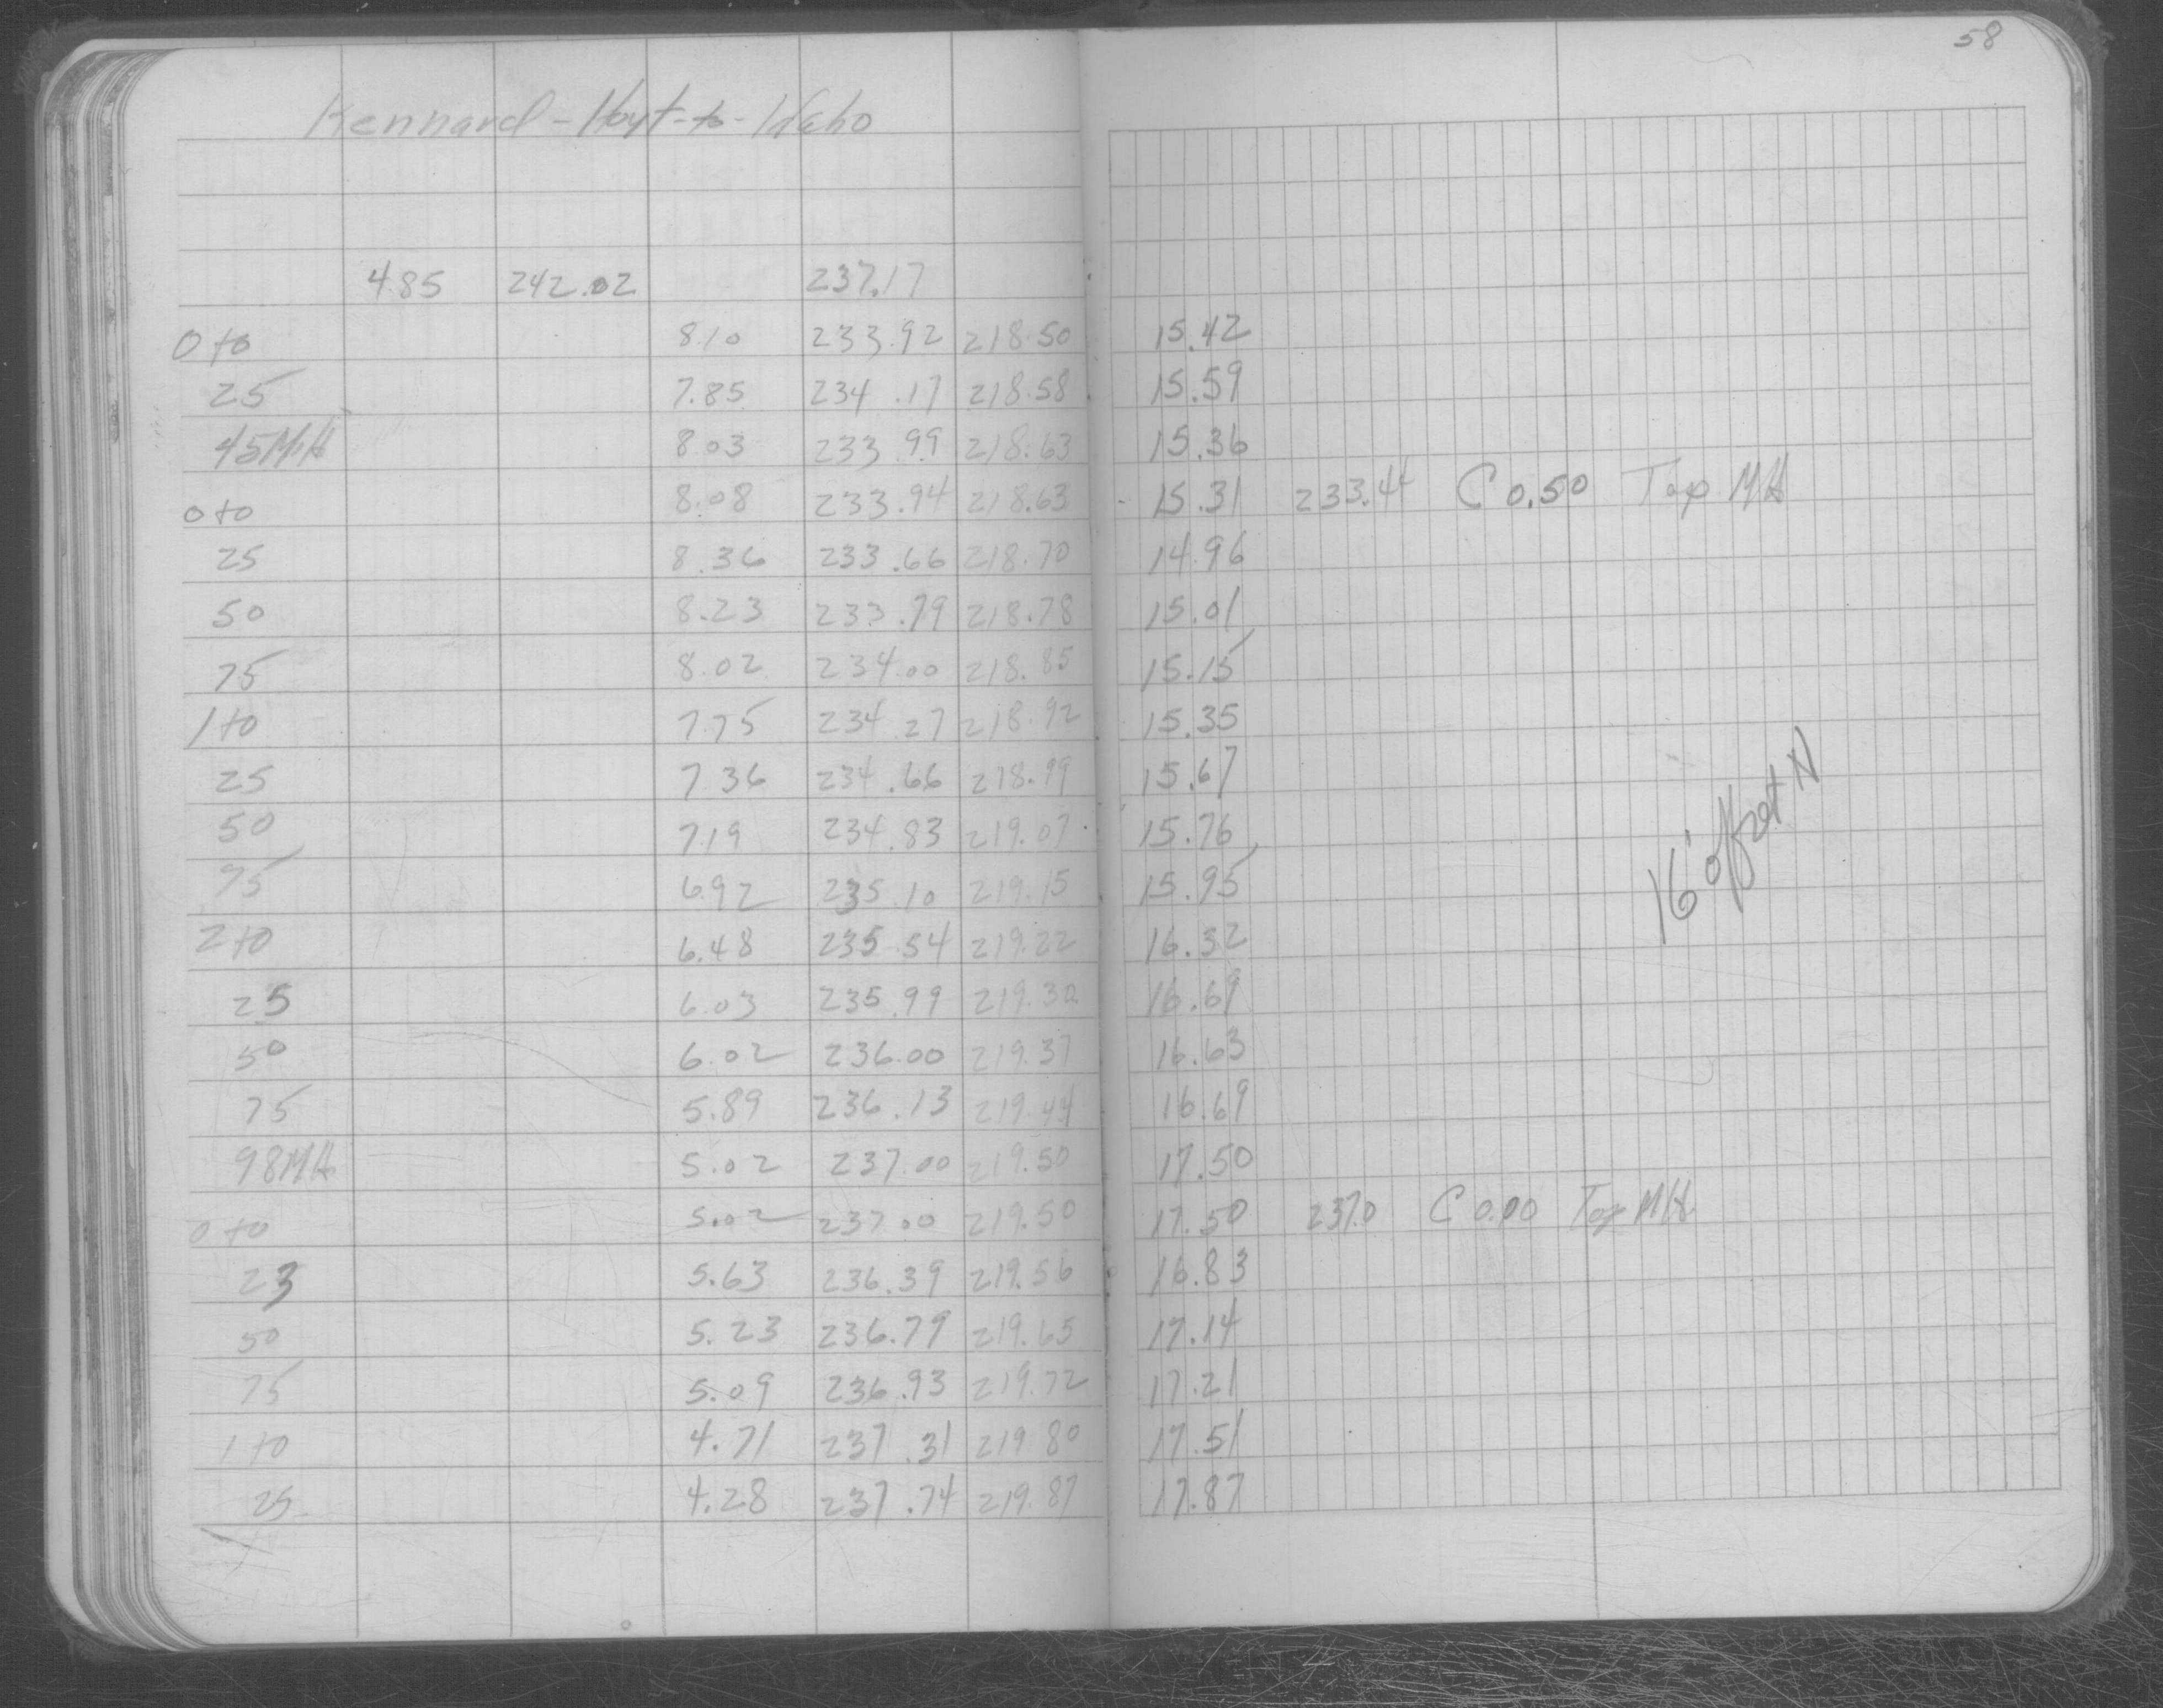 58
Kennard - Hoyt - to - Idaho
4.85 242.02 237.17
0+0 8.10 233.92 218.50 15.42
25 7.85 234.17 218.58 15.59
45MH 8.03 233.99 218.63 15.36
0+0 8.08 233.94 218.63 15.31 233.44 C 0.50 Top MH
25 8.36 233.66 218.70 14.96
50 8.23 233.79 218.78 15.01
75 8.02 234.00 218.85 15.15
1+0 7.75 234.27 218.92 15.35
25 7.36 234.66 218.99 15.67
50 7.19 234.83 219.07 15.76
75 6.92 235.10 219.15 15.95
16' offset N
2+0 6.48 235.54 219.22 16.32
25 6.03 235.99 219.30 16.69
50 6.02 236.00 219.37 16.63
75 5.89 236.13 219.44 16.69
98MH 5.02 237.00 219.50 17.50
0+0 5.02 237.00 219.50 17.50 237.0 C 0.00 Top MH
23 5.63 236.39 219.56 16.83
50 5.23 236.79 219.65 17.14
75 5.09 236.93 219.72 17.21
1+0 4.71 237.31 219.80 17.51
25 4.28 237.74 219.87 17.87